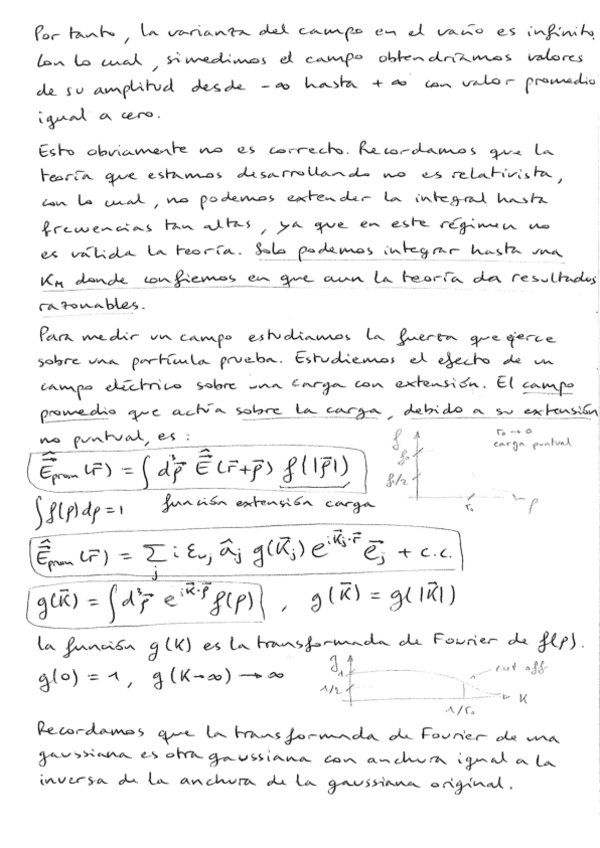 Por tanto, la varianza del campo en el vacío es infinito.
Con lo cual, si medimos el campo obtendríamos valores
de su amplitud desde -∞ hasta +∞ con valor promedio
igual a cero.
Esto obviamente no es correcto. Recordamos que la
teoría que estamos desarrollando no es relativista,
con lo cual, no podemos extender la integral hasta
frecuencias tan altas, ya que en este régimen no
es válida la teoría. Solo podemos integrar hasta una
K_M donde confiemos en que aun la teoría da resultados
razonables.
Para medir un campo estudiamos la fuerza que ejerce
sobre una partícula prueba. Estudiemos el efecto de un
campo eléctrico sobre una carga con extensión. El campo
promedio que actúa sobre la carga, debido a su extensión
no puntual, es:
f f₀ f₀/2 r₀ ρ
r₀ → 0
carga puntual
Ê⃗_prom(r⃗) = ∫ d³ρ⃗ Ê⃗(r⃗+ρ⃗) f(|ρ⃗|)
∫f(ρ)dρ = 1 función extensión carga
Ê⃗_prom(r⃗) = Σ_j i ε_νj â_j g(K⃗_j) e^{iK⃗_j·r⃗} e⃗_j + c.c.
g(K⃗) = ∫d³ρ⃗ e^{iK⃗·ρ⃗} f(ρ) , g(K⃗) = g(|K⃗|)
la función g(K) es la transformada de Fourier de f(ρ).
g(0) = 1, g(K→∞) → ∞
g 1 1/2 cut off 1/r₀ K
Recordamos que la transformada de Fourier de una
gaussiana es otra gaussiana con anchura igual a la
inversa de la anchura de la gaussiana original.